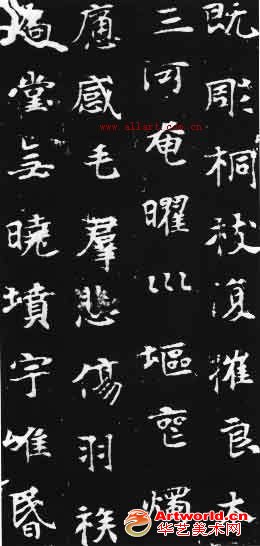 既彫桐枝復摧良木
三河奄曜巛塸空燭
感毛羣悲傷羽族
堂無曉墳宇唯昏
www.allart.com.cn
Artworld.cn
华艺美术网